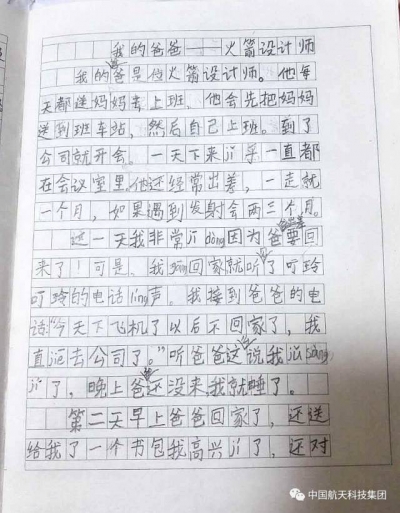 我的爸爸——火箭设计师
我的爸是位火箭设计师。他每
天都送妈妈去上班，他会先把妈妈
送到班车站，然后自己上班。到了
公司就开会。一天下来jī乎一直都
在会议室里。他还经常出差，一走就
一个月，如果遇到发射会两三个月。
这一天我非常jī dòng因为爸要回
来了！可是、我gāng回家就听了叮玲
叮玲的电话líng声。我接到爸爸的电
话“今天下飞机了以后不回家了，我
直 去公司了。”听爸爸这说，我
jí了，晚上爸还没来，我就睡了。
第二天早上爸爸回家了，还送
给我了一个书包我高兴jí了，还对
中国航天科技集团